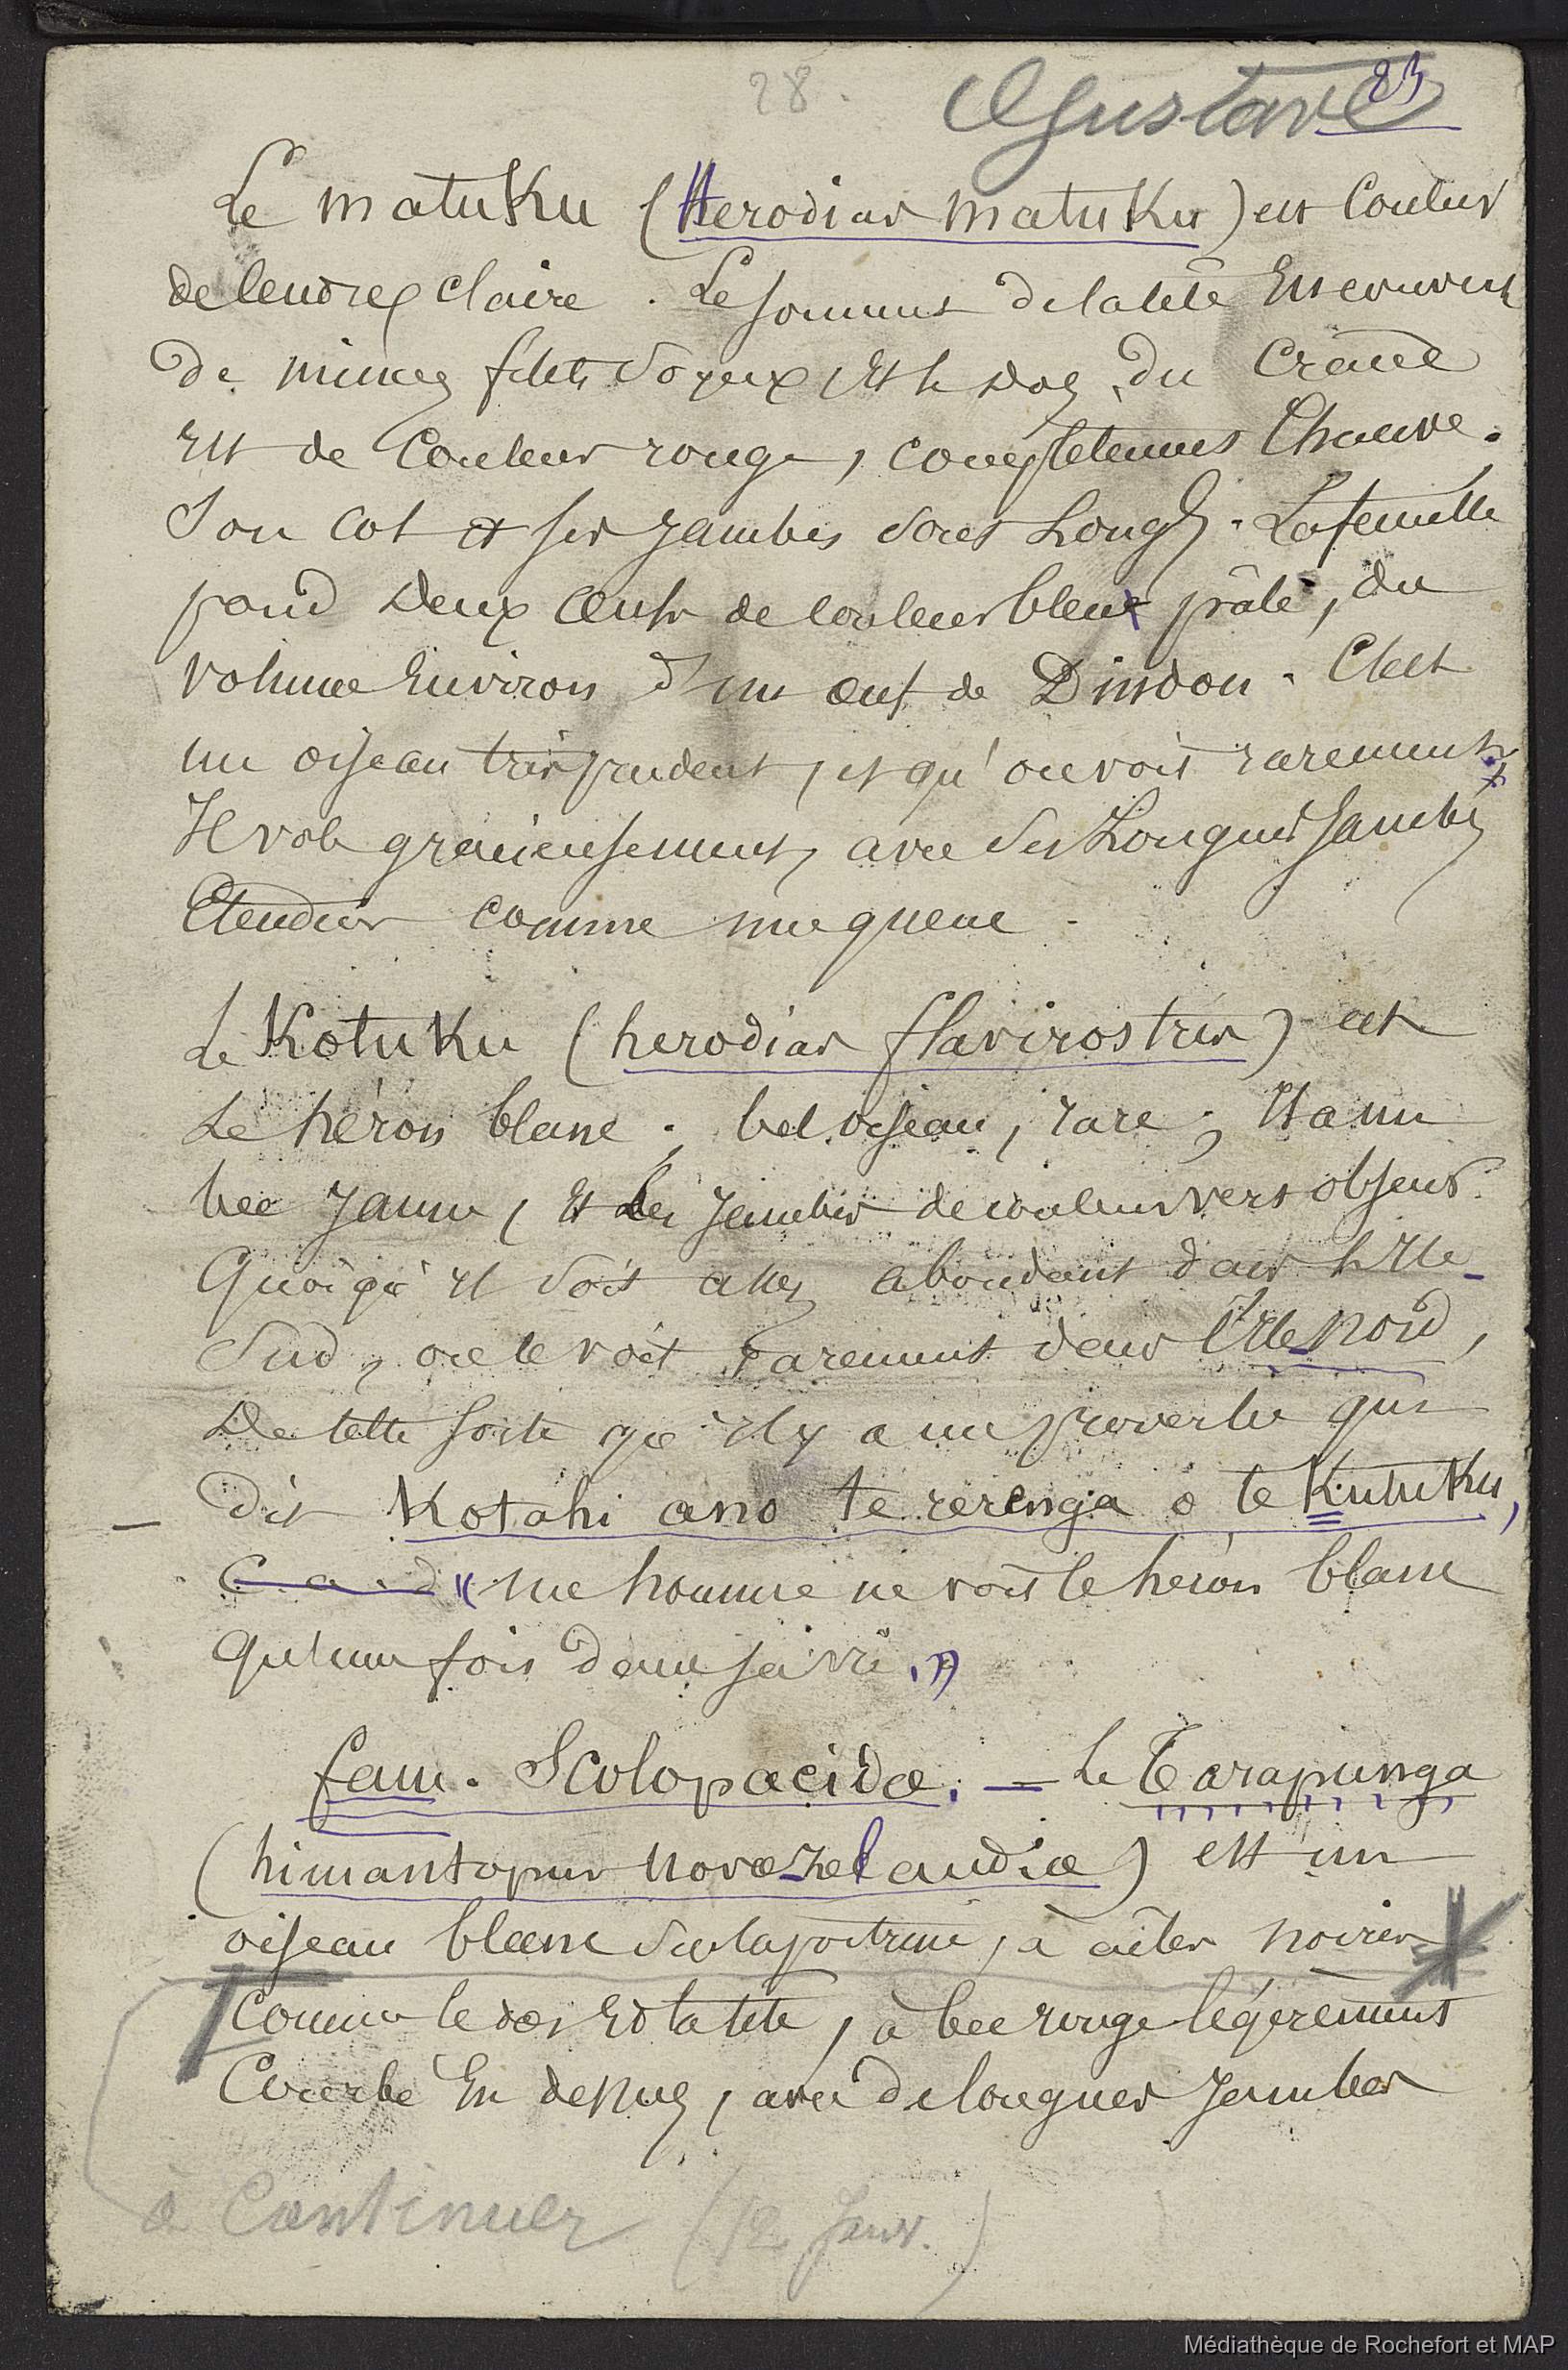 28.
Gustave
23
Le matuku (Herodias matuku) est couleur
de cendres claire. Le sommet de la tête est couvert
de minces filets soyeux, et le dos du crâne
est de couleur rouge, complètement chauve.
Son col et ses jambes sont longs. La femelle
pond deux œufs de couleur bleue pâle, du
volume environ d'un œuf de Dindon. C'est
un oiseau très prudent, et qu'on voit rarement.
Il vole gracieusement, avec ses longues jambes
étendues comme une queue.
Le Kotuku (herodias flavirostris) est
le héron blanc; bel oiseau, rare; il a un
bec jaune, et les jambes de couleur vert obscur.
Quoiqu'il soit assez abondant dans l'Ile-
Sud, on le voit rarement dans l'Ile-Nord,
De telle sorte qu'il y a un proverbe qui
dit Kotahi ano te rerenga o te Kutuku,
c. a. d « un homme ne voit le héron blanc
qu'une fois dans sa vie. »
fam. Scolopacidæ. — Le Tarapunga
(himantopus novæ-zelandiæ) est un
oiseau blanc sur la poitrine, à ailes noires
comme le dos et la tête, à bec rouge légèrement
courbé en dessus, avec de longues jambes
à continuer (12 Janv.)
Médiathèque de Rochefort et MAP